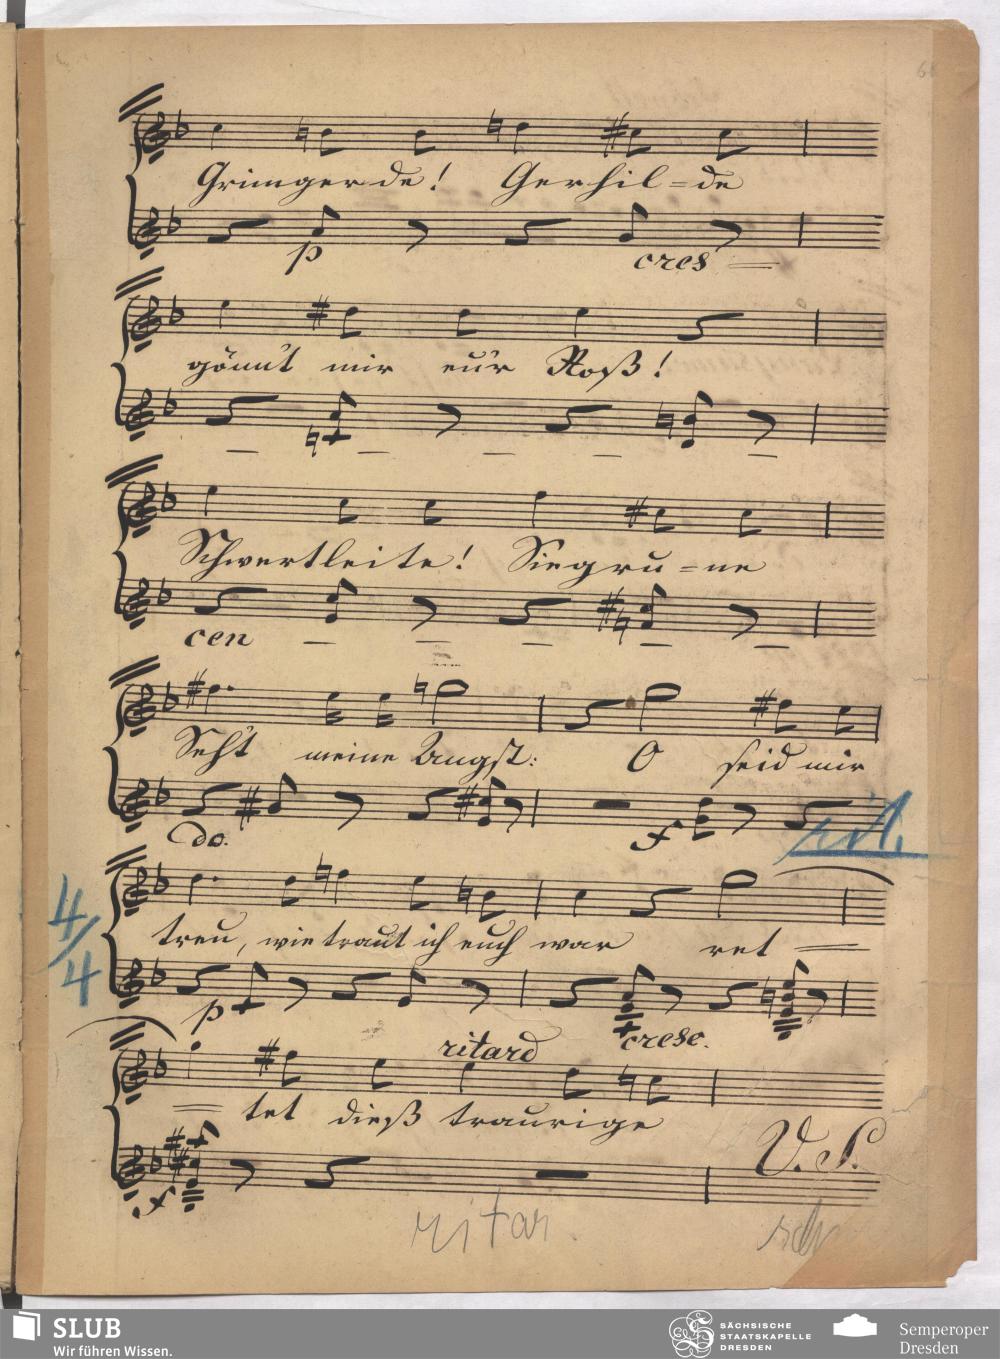 Grimgerde! Gerhil=de
p cres
gönn't mir eu'r Roß!
Schwertleite! Siegru=ne
cen
Seh't meine Angst: O seid mir
do. f rit.
4/4
treu, wie traut ich euch war ret
p cresc.
ritard
tet dieß traurige
V. S.
f
ritar
SLUB
Wir führen Wissen.
SÄCHSISCHE
STAATSKAPELLE
DRESDEN
Semperoper
Dresden